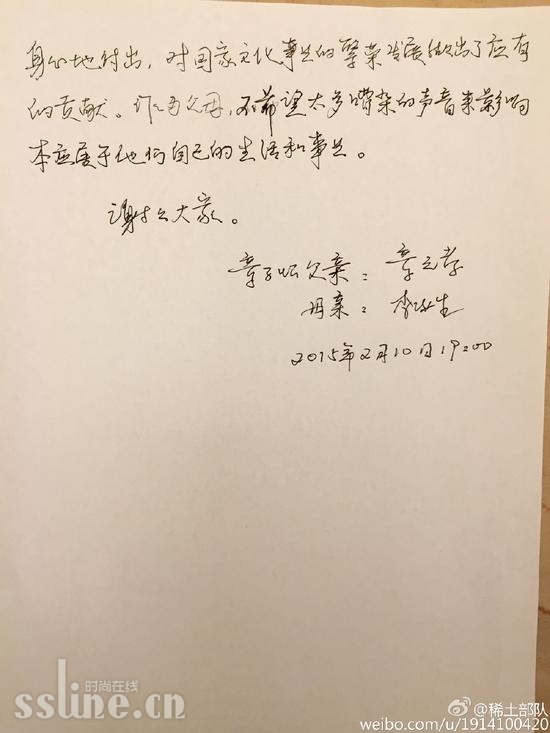 身心地付出，对国家文化事业的繁荣发展做出了应有
的贡献。作为父母，不希望太多嘈杂的声音来影响
本应属于他们自己的生活和事业。
谢谢大家。
章子怡父亲：章元孝
母亲：李涿生
2015年2月10日19:00
时尚在线
ssline.cn
@稀土部队
weibo.com/u/1914100420